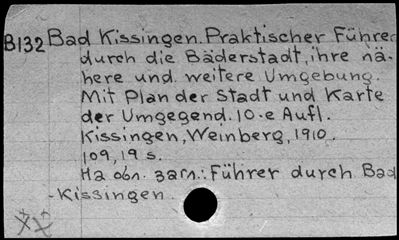 B132 Bad Kissingen. Praktischer Führer
durch die Bäderstadt, ihre nä-
here und weitere Umgebung.
Mit Plan der Stadt und Karte
der Umgegend. 10-e Aufl.
Kissingen, Weinberg, 1910.
109, 19 s.
На обл. загл.: Führer durch Bad
-Kissingen